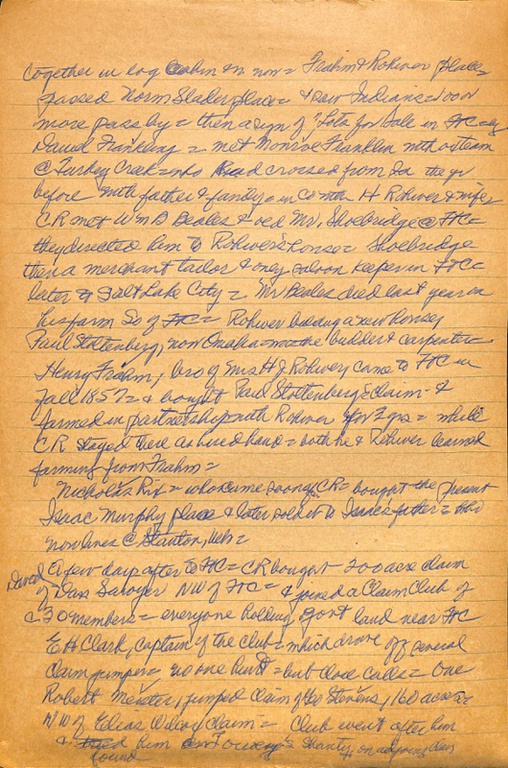 together in log cabin on now = Frahm & Rohwer place =
passed Norm Slader place = & saw Indians = 1000 or
more pass by = then a sign of "Lots for Sale in FtC = by
David Franklin = met Monroe Franklin with ox team
@ Turkey Creek = who had crossed from Ia the yr
before with father & family = in Co with H Rohwer & wife
CR met Wm B Beales & old Mr. Shoebridge @ FtC =
they directed him to Rohwer's house = Shoebridge
then a merchant tailor & only saloon keeper in FtC =
later to Salt Lake City = Mr Beales died last year on
his farm So of FtC = Rohwer building a new house
Paul Stoltenberg, now Omaha = was the builder & carpenter =
Henry Frahm, bro of Mrs H J Rohwer, came to FtC in
fall 1857 = & bought Paul Stoltenberg's claim = &
farmed in partnership with Rohwer for 2 yrs = while
CR stayed there as hired hand = both he & Rohwer learned
farming from Frahm =
Nicholas Rix = who came soon = CR = bought the present
Isaac Murphy place & later sold it to Isaac's father = who
now lives @ Stanton, Neb =
A few days after to FtC = CR bought 200 acre claim
of Dave Sawyer NW of FtC = & joined a Claim Club of
30 members = everyone holding govt land near FtC
E H Clark, captain of the club = which drove off several
claim jumpers = no one hurt = but close calls = One
Robert , jumped claim of Geo Stevens, 160 acres =
NW of Elias Wilcox claim = Club went after him
& found him in shanty, on adjoining claim